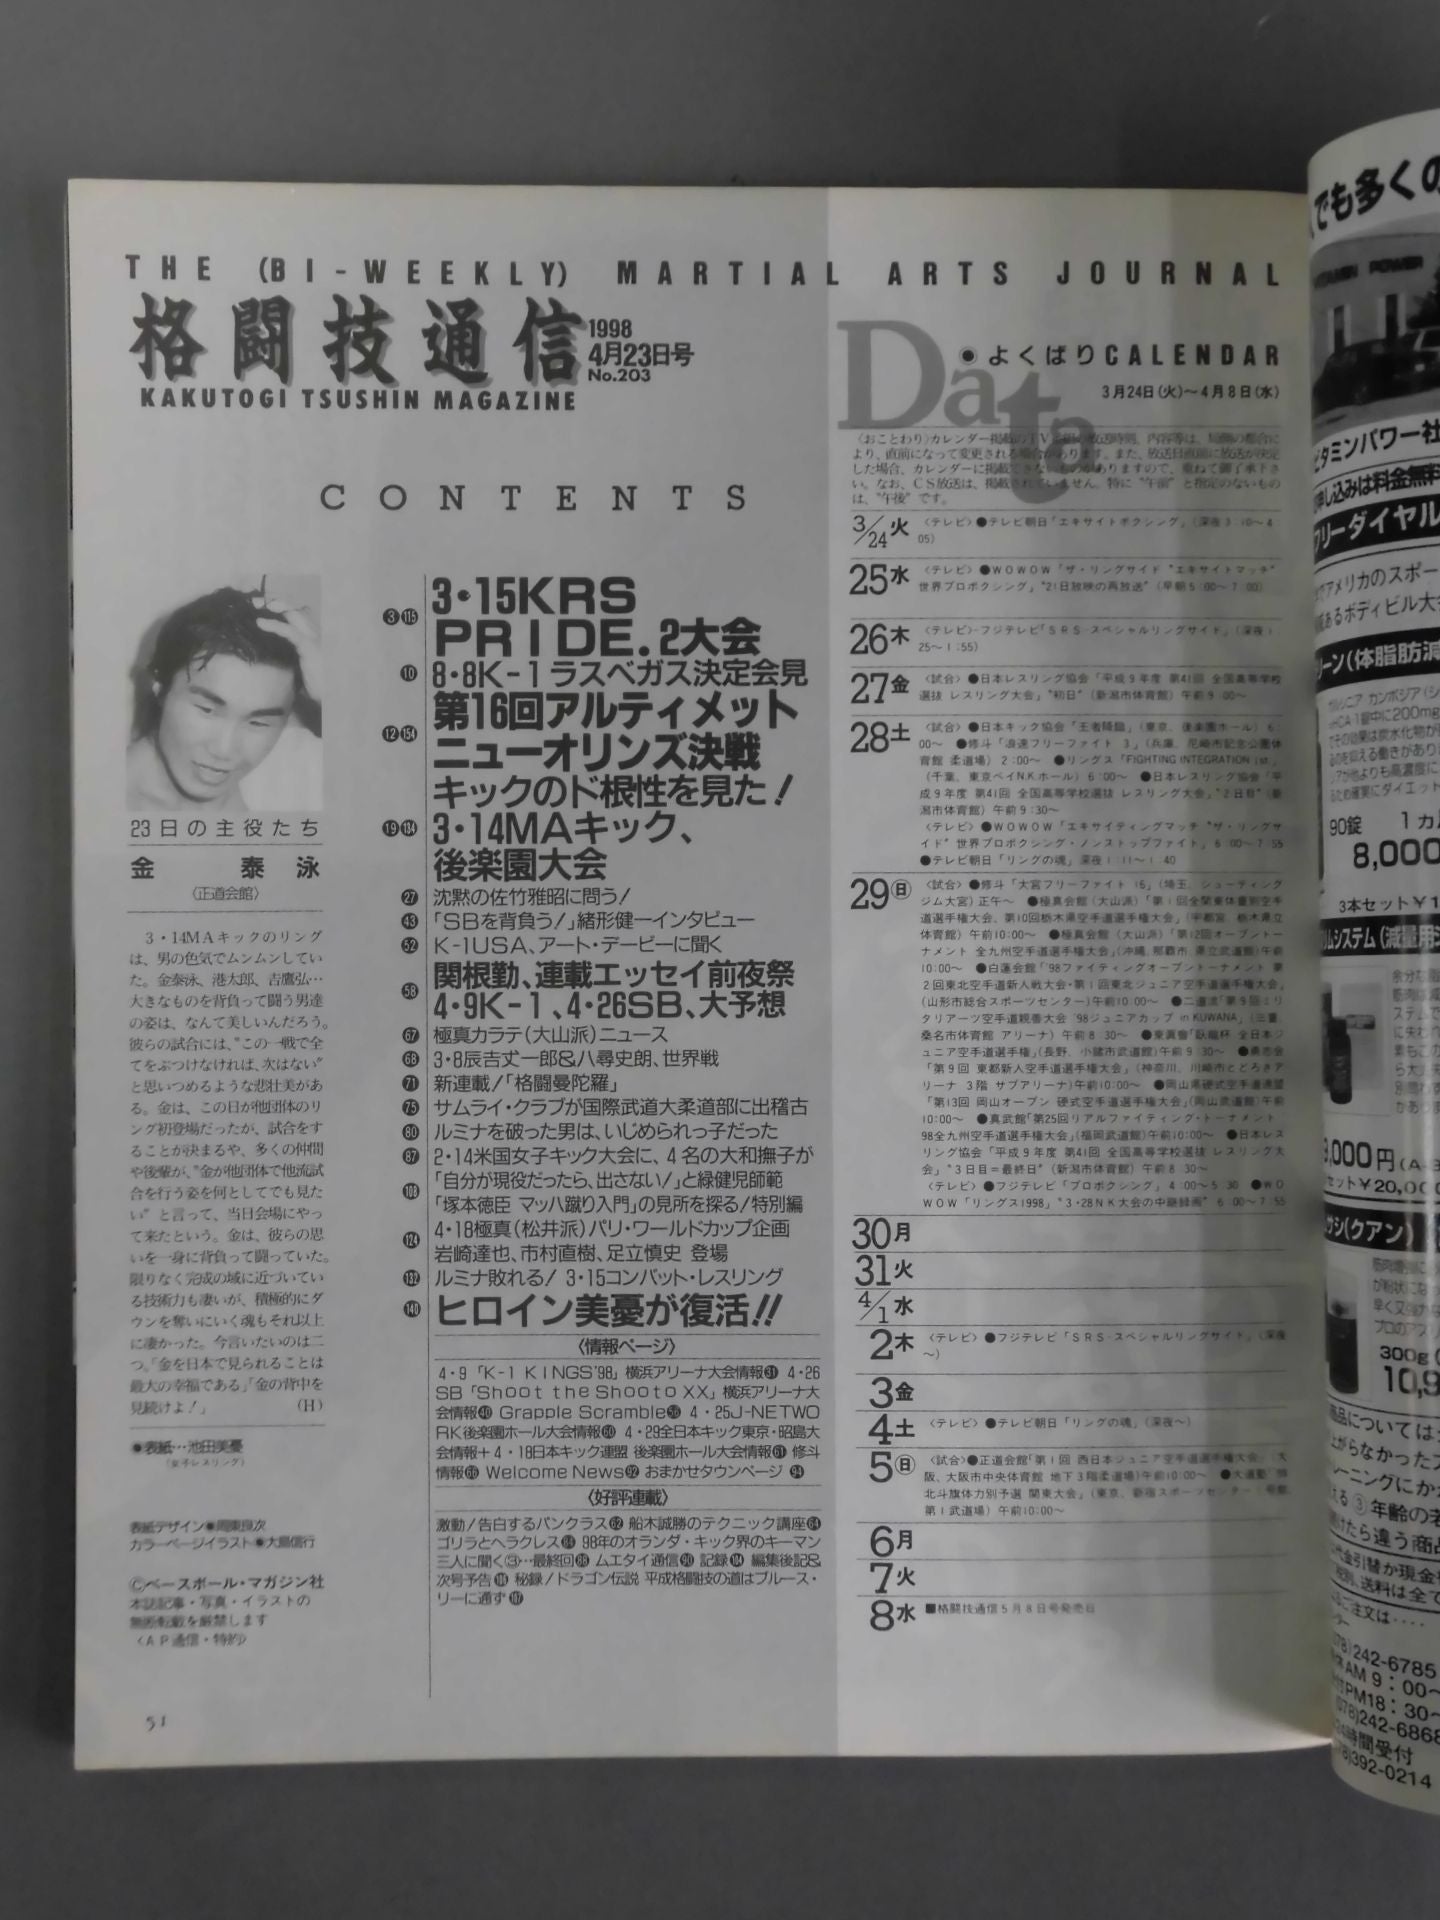 THE (BI-WEEKLY) MARTIAL ARTS JOURNAL
格闘技通信
1998
4月23日号
No.203
KAKUTOGI TSUSHIN MAGAZINE
CONTENTS
23日の主役たち
金 泰泳
〈正道会館〉
3・14MAキックのリング
は、男の色気でムンムンしてい
た。金泰泳、港太郎、吉鷹弘…
大きなものを背負って闘う男達
の姿は、なんて美しいんだろう。
彼らの試合には、“この一戦で全
てをぶつけなければ、次はない”
と思いつめるような悲壮美があ
る。金は、この日が他団体のリ
ング初登場だったが、試合をす
ることが決まるや、多くの仲間
や後輩が、“金が他団体で他流試
合を行う姿を何としてでも見た
い”と言って、当日会場にやっ
て来たという。金は、彼らの思
いを一身に背負って闘っていた。
限りなく完成の域に近づいてい
る技術力も凄いが、積極的にダ
ウンを奪いにいく魂もそれ以上
に凄かった。今言いたいのは二
つ。「金を日本で見られることは
最大の幸福である」「金の背中を
見続けよ!」 (H)
●表紙…池田美憂
(女子レスリング)
表紙デザイン●周東良次
カラーページイラスト●大島信行
©ベースボール・マガジン社
本誌記事・写真・イラストの
無断転載を厳禁します
〈AP通信・特約〉
51
3 115 3・15KRS
PRIDE.2大会
10 8・8K-1ラスベガス決定会見
12 154 第16回アルティメット
ニューオリンズ決戦
キックのド根性を見た!
19 134 3・14MAキック、
後楽園大会
27 沈黙の佐竹雅昭に問う!
43 「SBを背負う!」緒形健一インタビュー
52 K-1USA、アート・デービーに聞く
58 関根勤、連載エッセイ前夜祭
4・9K-1、4・26SB、大予想
67 極真カラテ(大山派)ニュース
68 3・8辰吉丈一郎&八尋史朗、世界戦
71 新連載!「格闘曼陀羅」
75 サムライ・クラブが国際武道大柔道部に出稽古
80 ルミナを破った男は、いじめられっ子だった
87 2・14米国女子キック大会に、4名の大和撫子が
108 「自分が現役だったら、出さない!」と緑健児師範
「塚本徳臣 マッハ蹴り入門」の見所を探る!特別編
124 4・18極真(松井派)パリ・ワールドカップ企画
岩崎達也、市村直樹、足立慎史 登場
132 ルミナ敗れる! 3・15コンバット・レスリング
140 ヒロイン美憂が復活!!
〈情報ページ〉
4・9「K-1 KINGS'98」横浜アリーナ大会情報31 4・26
SB「Shoot the Shooto XX」横浜アリーナ大
会情報40 Grapple Scramble56 4・25J-NETWO
RK後楽園ホール大会情報60 4・29全日本キック東京・昭島大
会情報+4・18日本キック連盟 後楽園ホール大会情報61 修斗
情報66 Welcome News92 おまかせタウンページ 94
〈好評連載〉
激動!告白するパンクラス62 船木誠勝のテクニック講座64
ゴリラとヘラクレス84 98年のオランダ・キック界のキーマン
三人に聞く③…最終回88 ムエタイ通信90 記録104 編集後記&
次号予告106 秘録!ドラゴン伝説 平成格闘技の道はブルース・
リーに通ず107
Data
●よくばりCALENDAR
3月24日(火)〜4月8日(水)
〈おことわり〉カレンダー掲載のTV番組の放送時刻、内容等は、局側の都合に
より、直前になって変更される場合があります。また、放送日直前に放送が決定
した場合、カレンダーに掲載できないものがありますので、重ねて御了承下さ
い。なお、CS放送は、掲載されていません。特に“午前”と指定のないもの
は、“午後”です。
3/24火 〈テレビ〉●テレビ朝日「エキサイトボクシング」(深夜3:10〜4:
05)
25水 〈テレビ〉●WOWOW「ザ・リングサイド “エキサイトマッチ”
世界プロボクシング」“21日放映の再放送”(早朝5:00〜7:00)
26木 〈テレビ〉・フジテレビ「SRS・スペシャルリングサイド」(深夜1:
25〜1:55)
27金 〈試合〉●日本レスリング協会「平成9年度 第41回 全国高等学校
選抜 レスリング大会」“初日”(新潟市体育館)午前9:00〜
28土 〈試合〉●日本キック協会「王者降臨」(東京、後楽園ホール)6:
00〜 ●修斗「浪速フリーファイト 3」(兵庫、尼崎市記念公園体
育館 柔道場)2:00〜 ●リングス「FIGHTING INTEGRATION 1st.」
(千葉、東京ベイN.K.ホール)6:00〜 ●日本レスリング協会「平
成9年度 第41回 全国高等学校選抜 レスリング大会」“2日目”(新
潟市体育館)午前9:30〜
〈テレビ〉●WOWOW「エキサイティングマッチ “ザ・リングサ
イド” 世界プロボクシング・ノンストップファイト」6:00〜7:55
●テレビ朝日「リングの魂」深夜1:11〜1:40
29日 〈試合〉●修斗「大宮フリーファイト 16」(埼玉、シューティング
ジム大宮)正午〜 ●極真会館(大山派)「第1回全関東体重別空手
道選手権大会、第10回栃木県空手道選手権大会」(宇都宮、栃木県立
体育館)午前10:00〜 ●極真会館(大山派)「第12回オープントー
ナメント 全九州空手道選手権大会」(沖縄、那覇市 県立武道館)午前
10:00〜 ●白蓮会館「'98ファイティングオープントーナメント 第
2回東北空手道新人戦大会・第1回東北ジュニア空手道選手権大会」
(山形市総合スポーツセンター)午前10:00〜 ●二道流「第9回ミリ
タリアーツ空手道親善大会 '98ジュニアカップ in KUWANA」(三重、
桑名市体育館 アリーナ)午前8:30〜 ●東眞會「臥龍杯 全日本ジ
ュニア空手道選手権」(長野、小諸市武道館)午前9:30〜 ●勇志会
「第9回 東都新人空手道選手権大会」(神奈川、川崎市とどろきア
リーナ 3階 サブアリーナ)午前10:00〜 ●岡山県硬式空手道連盟
「第13回 岡山オープン 硬式空手道選手権大会」(岡山武道館)午前
10:00〜 ●真武館「第25回リアルファイティング・トーナメント
98全九州空手道選手権大会」(福岡武道館)午前10:00〜 ●日本レス
リング協会「平成9年度 第41回 全国高等学校選抜 レスリング大
会」“3日目=最終日”(新潟市体育館)午前8:30〜
〈テレビ〉●フジテレビ「プロボクシング」4:00〜5:30 ●WO
WOW「リングス1998」“3・28NK大会の中継録画”6:00〜7:55
30月
31火
4/1水
2木 〈テレビ〉●フジテレビ「SRS・スペシャルリングサイド」(深夜
〜)
3金
4土 〈テレビ〉●テレビ朝日「リングの魂」(深夜〜)
5日 〈試合〉●正道会館「第1回 西日本ジュニア空手道選手権大会」(大
阪、大阪市中央体育館 地下3階柔道場)午前10:00〜 ●大道塾「'98
北斗旗体力別予選 関東大会」(東京、新宿スポーツセンター
第1武道場)午前10:00〜
6月
7火
8水 ■格闘技通信5月8日号発売日
でも多くの
ビタミンパワー社
フリーダイヤル
90錠
8,000
3本セット
10,9
(078)242-6785
AM9:00〜
PM18:30〜
(078)242-6868
24時間受付
392-0214